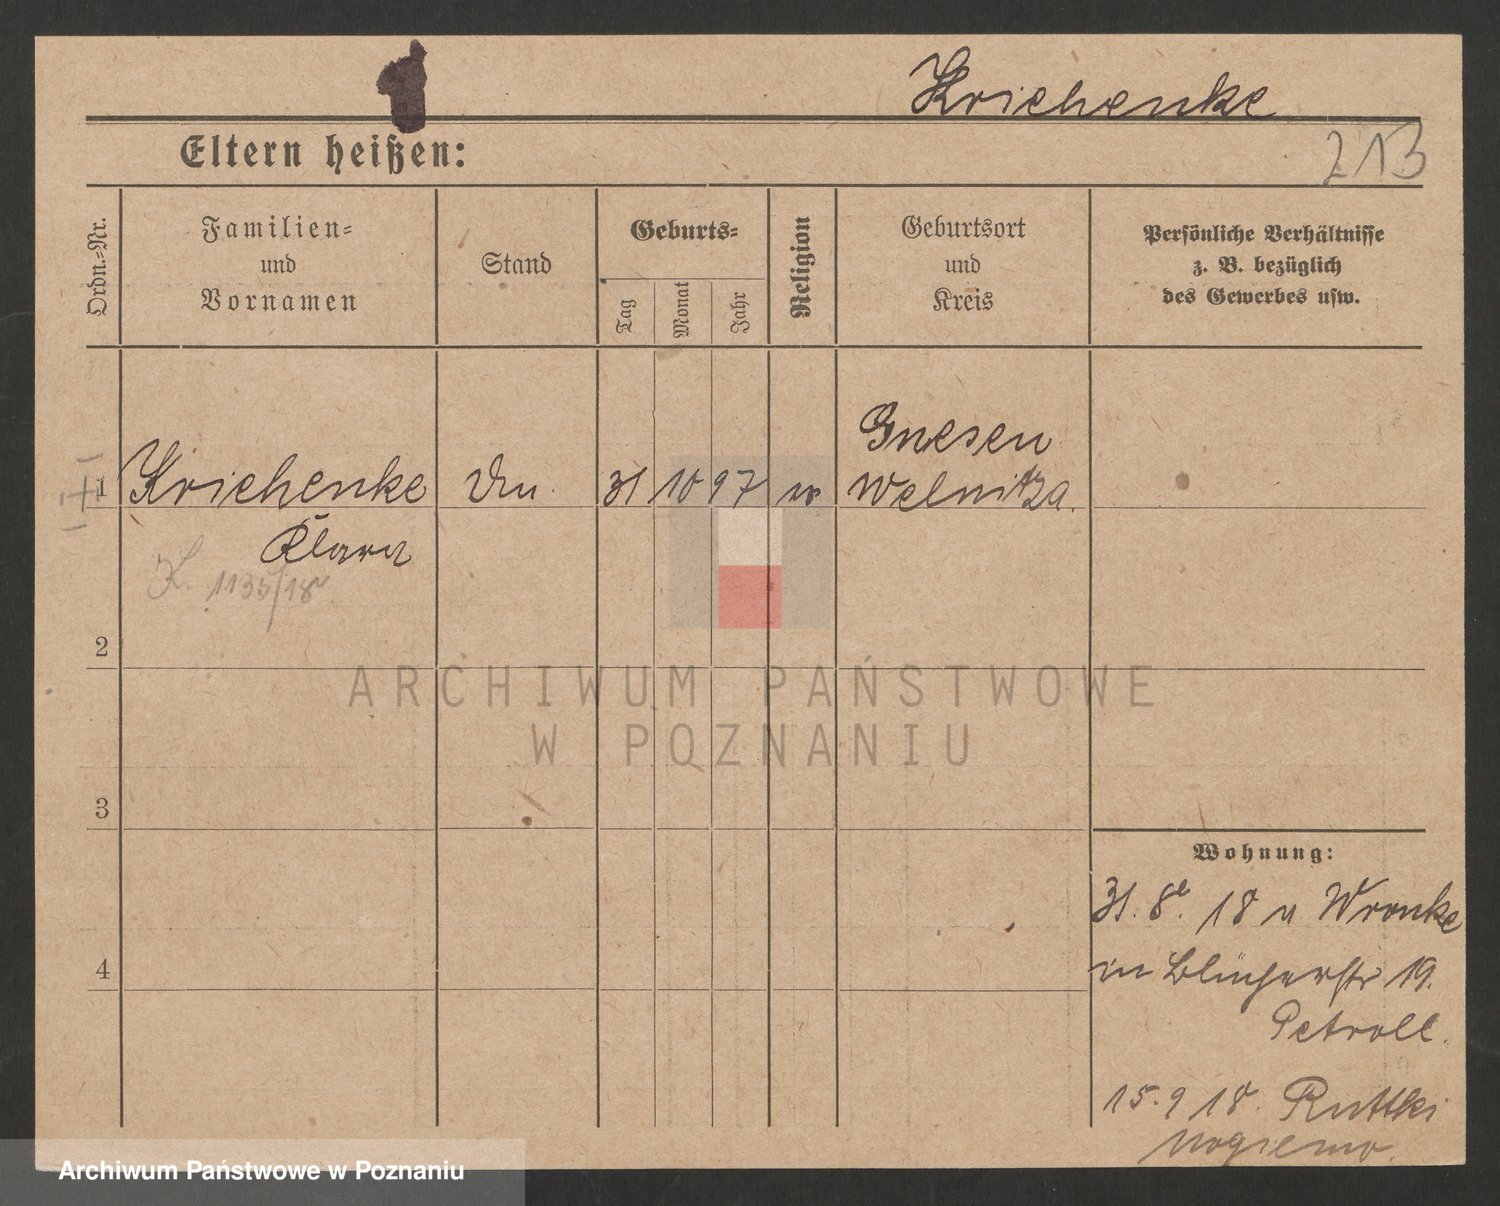 Kriehenke
213
Eltern heißen:
Ordn.=Nr.
Familien=
und
Vornamen
Stand
Geburts=
Tag
Monat
Jahr
Religion
Geburtsort
und
Kreis
Persönliche Verhältnisse
z. B. bezüglich
des Gewerbes usw.
Gnesen
1 Kriehenke 31 10 97 Welnitza.
Klara
K. 1135/18
2
ARCHIWUM PAŃSTWOWE
W POZNANIU
3
Wohnung:
31. 8. 18 Wronke
in Blücherstr 19.
Petroll.
4
15. 9 18. Ruttki
Archiwum Państwowe w Poznaniu